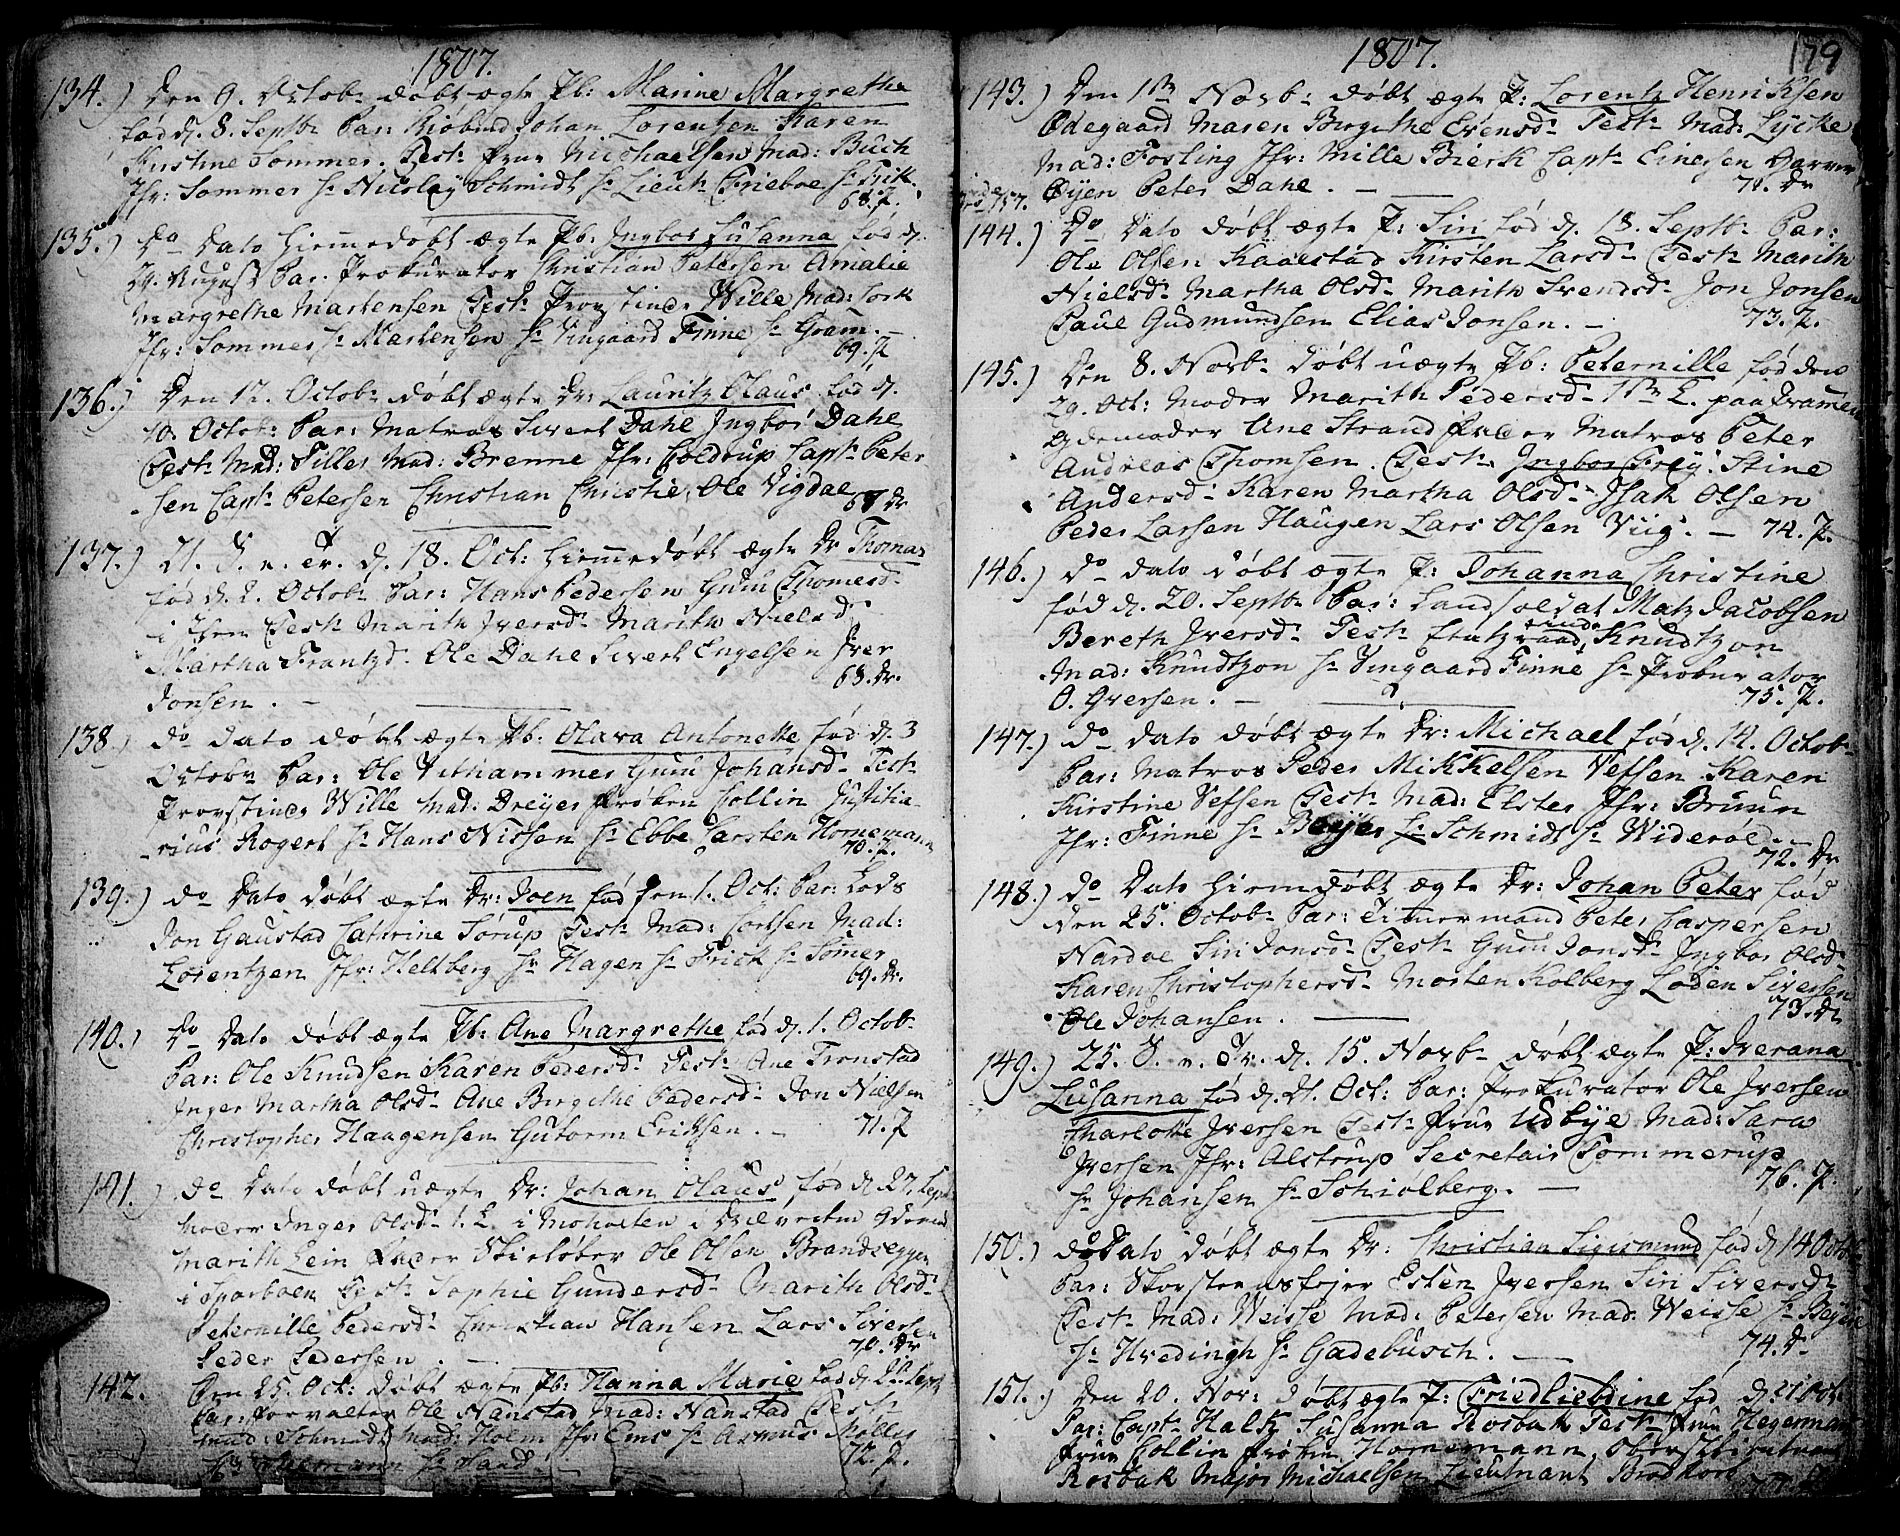 1807.
134.) Den 9. Octobr døbt ægte Pb: Marine Margrethe
fød d. 8. Septbr Par: Kiøbmd Johan Lorentzen Karen
Kirstine Sommer. Test: Frue Michaelsen Mad: Buch
Jfr: Sommer Hr Nicolay Schmidt Hr Lieut: Trieboe Hr Frik.
68. P.
135.) Do Dato hiemmedøbt ægte Pb: Ingbor Susanna fød d.
29. August Par: Prokurator Christian Petersen Amalie
Margrethe Martensen Test: Provstinde Wille Mad:
Jfr: Sommer Hr Martensen Hr Vingaard Finne Hr Gram. —
69. P
136.) Den 12. Octobr døbt ægte Dr: Lauritz Claus fød d.
10. Octobr Par: Matros Sivert Dahl Ingbor Dahl
Test: Mad: Tiller Mad: Brenne Jfr: Coldrup Capt: Peter
sen Capt: Petersen Christian Christie, Ole Vigdal
67 Dr
137.) 21. S. e. Tr. d. 18. Oct: hiemmedøbt ægte Dr Thomas
fød d. 2. Octobr Par: Hans Pedersen Guru Thomesd:
i Test: Marith Iversd: Marith Nielsd:
Martha Frantzd. Ole Dahl Sivert Engelsen Iver
Jonsen. —
68. Dr.
138.) do dato døbt ægte Pb: Olava Antonette fød d. 3
Octobr Par: Ole Vithammer Guru Johansd: Test:
Provstinde Wille Mad: Dreyer Frøken Collin Justitia-
rius Rogert Hr Hans Nissen Hr Ebbe Carsten Hornemann
70. P.
139.) do Dato døbt ægte Dr: Joen fød den 1. Oct: Par: Lods
Jon Gaustad Catrine Sørup Test: Mad: Coldsen Mad:
Lorentzen Jfr: Heltberg Hr Hagen Hr Frick Hr Sommer
69. Dr.
140.) Do Dato døbt ægte Pb: Ane Margrethe fød d. 1. Octob:
Par: Ole Knudsen Karen Pedersd: Test: Ane Tronstad
Inger Martha Olsd: Ane Birgithe Pedersd: Jon Nielsen
Christopher Haagensen Gutorm Eriksen. —
71. P
141.) do Dato døbt uægte Dr: Johan Claus fød d 27. Sept:
Moder Inger Olsd: 1. L. i Moholten i
Marith Lein Fader Skieløber Ole Olsen Brandseggen
i Sparboen Test: Sophie Gundersd: Marith Olsd:
Peternille Pedersd: Christian Hansen Lars Siversen
Peder Pedersen. —
70. Dr
142. Den 25. Oct: døbt ægte Pb: Hanna Marie fød d 22. Sept
Par: Forvalter Ole Nanstad Mad: Nanstad Test:
Mad: Schmidt Mad: Holm Jfr: Ems Hr Asmus Møller
Hr Hr Sand. —
72. P.
1807.
179
143.) Den 1ste Novb: døbt ægte P: Lorentz Henriksen
Ødegaard Maren Birgithe Evensd: Test: Mad: Lycke
Mad: Fosling Jfr: Mille Bierk Capt: Einersen Garver
Øyen Peter Dahl. —
71. Dr
157.
144.) Do Dato døbt ægte P: Siri fød d. 18. Septbr Par:
Ole Olsen Kaalstad Kirsten Larsd: Test: Marith
Nielsd: Martha Olsd: Marith Svendsd: Jon Jonsen
Paul Gudmundsen Elias Jonsen. —
73. P.
145.) Den 8. Novb: døbt uægte Pb: Peternille fød den
29. Oct: Moder Marith Pedersd: 1ste L. paa Dramen
Gdemoder Ane Strand Fader Matros Peter
Andreas Thomsen. Test: Ingbor Frey: Stine
Andersd: Karen Martha Olsd: Isak Olsen
Peder Larsen Haugen Lars Olsen Viig. — 74. P.
146.) do dato døbt ægte P: Johanna Christine
fød d. 20. Septbr Par: Landsoldat Matz Jacobsen
Bereth Iversd: Test: Etatzraadinde Knudtzon
Mad: Knudtzon Hr Vingaard Finne Hr Prokurator
O. Iversen. —
75. P.
147.) do dato døbt ægte Dr: Michael fød d. 14. Octob:
Par: Matros Peder Mikkelsen Vefsen Karen
Kirstine Vefsen Test: Mad: Elster Jfr: Bruun
Jfr: Finne Hr Beyer Hr Schmidt Hr Widerøe. —
72. Dr
148.) do Dato hiemdøbt ægte Dr: Johan Peter fød
den 25. Octobr Par: Timmermand Peter Caspersen
Nardoe Siri Jonsd: Test: Guru Jonsd: Ingbor Olsd:
Karen Christophersd: Morten Kolberg Loden Siversen
Ole Johansen. —
73. Dr
149.) 25. S. e. Tr. d. 15. Novb: døbt ægte P: Iverana
Susanna fød d. 21. Oct: Par: Prokurator Ole Iversen
Charlotte Iversen Test: Frue Udbye Mad: Sara
Iversen Jfr: Alstrup Secretair Tommerup
Hr Johansen Hr Schiolberg. —
76. P.
150.) do Dato døbt ægte Dr: Christian Sigismund fød d 14 Octob
Par: Skorsteensfejer Esten Iversen Siri Siversd:
Test: Mad: Weisse Mad: Petersen Mad: Weisse Hr Beyer
Hr Hvedingh Hr Gadebusch. —
74. Dr
151.) Den 20. Nov: døbt ægte P: Friedliebdine fød d. 21 Oct.
Par: Capt: Haltz Susanna Rosbak Test: Frue Hegerman
Frue Collin Frøken Hornemann Oberstlieutnant
Rosbak Major Michaelsen Lieutnant Brodkorb